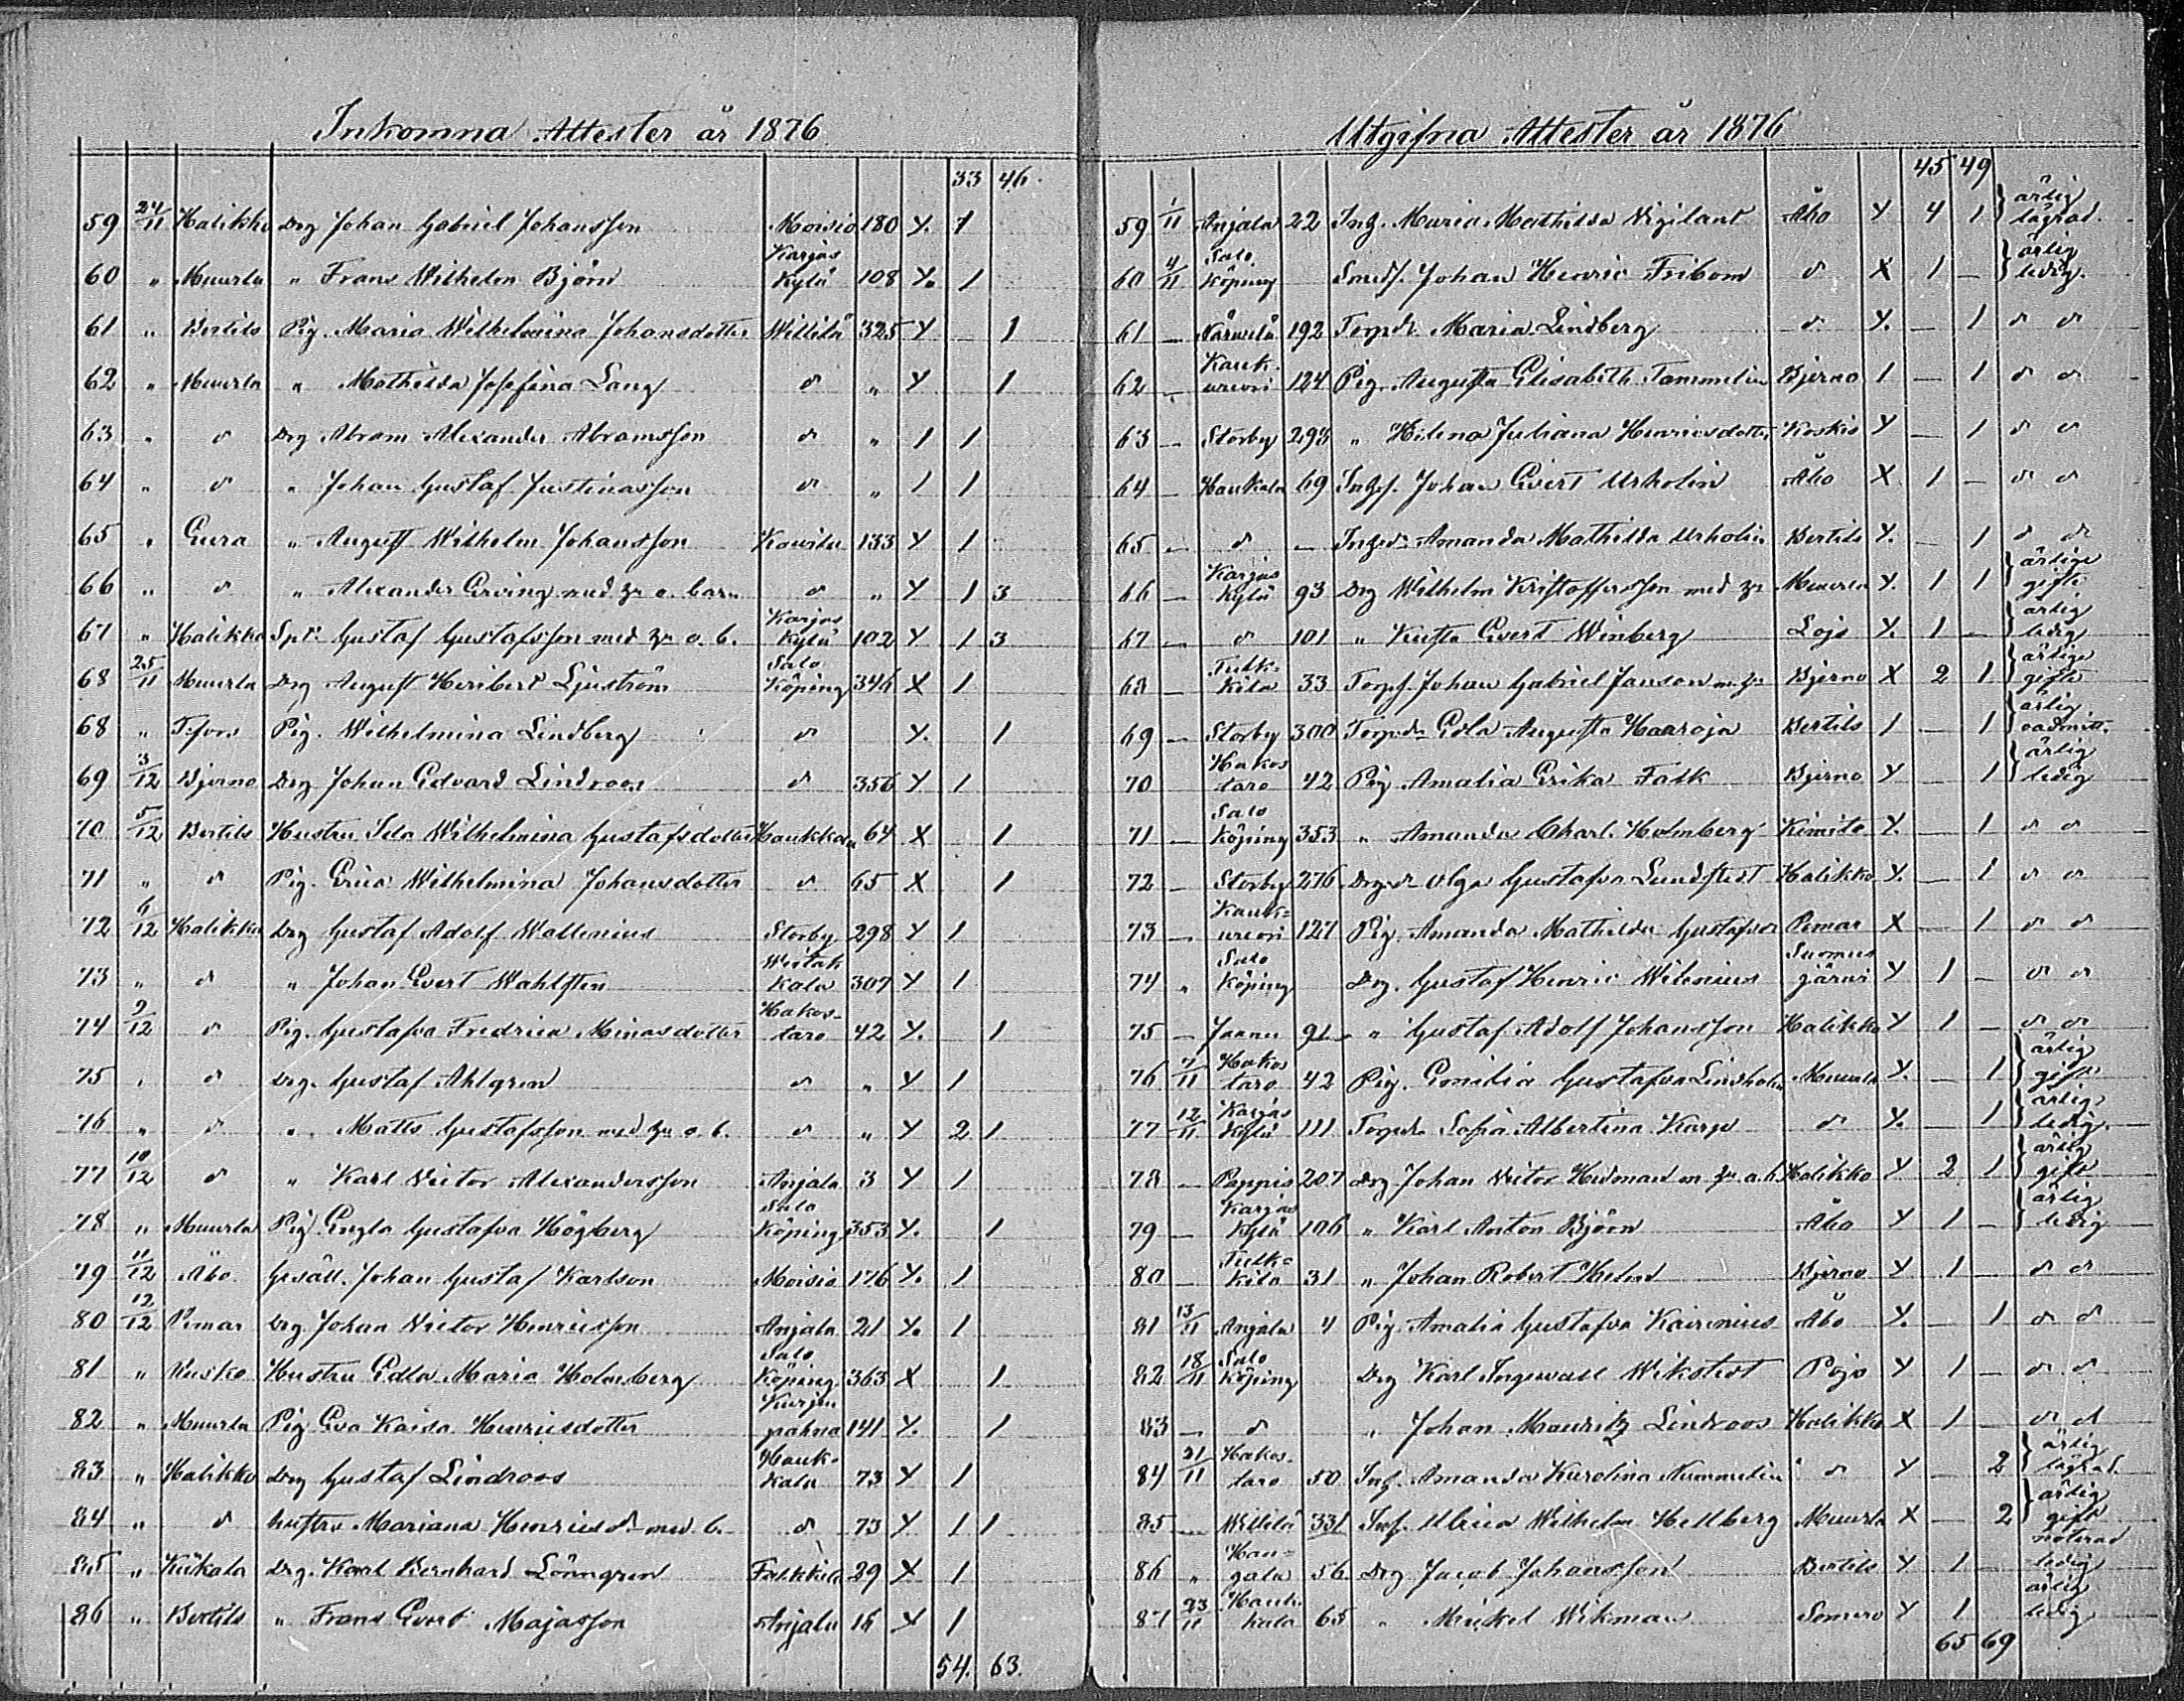 Inkomna Attester år 1876
33 46.
59 24/11 Halikko Drg Johan Gabriel Johansson Moisio 180 Y. 1
60 " Muurla " Frans Wilhelm Björn Karjas Kylä 108 Y. 1
61 " Bertils Pig. Maria Wilhelmina Johansdotter Willilä 325 Y 1
62 " Muurla " Mathilda Josefina Lang d " Y 1
63 " d Drg Abram Alexander Abramsson d " / 1
64 " d " Johan Gustaf Justinasson d " / 1
65 " Eura " August Wilhelm Johansson 133 Y 1
66 " d " Alexander Erving med hu o. barn d " Y 1 3
67 " Halikko Gustaf Gustafsson med hu o. b. Karjas Kylä 102 Y 1 3
68 25/11 Muurla Drg August Heribert Ljuström Salo Köping 346 X 1
68 " T:fors Pig. Wilhelmina Lindberg d Y. 1
69 3/12 Bjerno Drg Johan Edvard Lindroos d 356 Y 1
70 5/12 Bertils Hustru Ida Wilhelmina Gustafsdotter Haukkala 64 X 1
71 " d Pig. Erica Wilhelmina Johansdotter d 65 X 1
72 6/12 Halikko Drg Gustaf Adolf Wallenius Storby 298 Y 1
73 " d " Johan Evert Wahlsten kala 307 Y 1
74 9/12 d Pig. Gustafva Fredrica Minasdotter Hakos- taro 42 Y. 1
75 " d Drg. Gustaf Ahlgren d " Y 1
76 " d " Matts Gustafsson med hu o. b. d " Y 2 1
77 10/12 d " Karl Victor Alexandersson Anjala 3 Y 1
78 " Muurla Pig. Engla Gustafva Högberg Salo Köping 353 Y. 1
79 11/12 Åbo Gesäll. Johan Gustaf Karlson Moisio 176 Y. 1
80 12/12 Pemar Drg. Johan Victor Henricsson Anjala 21 Y. 1
81 " Rusko Hustru Edla Maria Holmberg Salo Köping 363 X 1
82 " Muurla Pig Eva Kaisa Henricsdotter Kurjen pahna 141 Y. 1
83 " Halikko Drg Gustaf Lindroos Hauk- kala 73 Y 1
84 " d hustru Mariana Henricsd. med b. d 73 Y 1 1
85 " Kiikala Drg. Karl Bernhard Lönngren 29 X 1
86 " Bertils " Frans Evert Majasson Anjala 16 Y 1
54. 63.
Utgifna Attester år 1876
45 49
59 1/11 Anjala 22 Inh. Maria Mathilda Vigilant Åbo Y 4 1 } ärlig lägrad.
60 4/11 Salo Köping Smeds. Johan Henric Fribom d X 1 — } ärlig ledig.
61 — 192 Torpdr Maria Lindberg d Y. — 1 d d
62 — 124 Pig. Augusta Elisabeth Tammelin Bjerno / — 1 d d
63 — Storby 293 " Helena Juliana Henricsdotter Koskis Y — 1 d d
64 — Haukala 69 Johan Evert Urholin Åbo X 1 — d d
65 — d — Amanda Mathilda Urholin Bertils Y. — 1 d d
66 — Karjas Kylä 93 Drg Wilhelm Kristoffersson med hu Muurla Y. 1 1 } ärlige gifte
67 — d 101 " Kusta Evert Winberg Lojo Y. 1 — } ärlig ledig
68 — Tulk- Kila 33 Torps. Johan Gabriel Janson m. hu Bjerno X 2 1 } ärlige gifte
69 — Storby 300 Torpdr Edla Augusta Haaroja Bertils / — 1 } ärlig oadmitt.
70 Hakos taro 42 Pig Amalia Erika Falk Bjerno Y — 1 } ärlig ledig
71 — Salo Köping 353 " Amanda Charl. Holmberg Kimito Y. — 1 d d
72 — Storby 276 Drgdr Olga Gustafva Lundstedt Halikko Y. — 1 d d
73 — 127 Pig. Amanda Mathilda Gustafsdr Pemar X — 1 d d
74 " Salo Köping Drg. Gustaf Henric Wilenius Suomusjärwi Y 1 — d d
75 — Joenu 91 " Gustaf Adolf Johansson Halikko Y 1 — d d
76 7/11 Hakos taro 42 Pig. Emilia Gustafva Lindholm Muurla Y. — 1 } ärlig gift
77 12/11 Karjas Kylä 111 Torpdr Sofia Albertina Karp d Y. — 1 } ärlig ledig.
78 — Pappis 207 Drg Johan Victor Hedman m hu o. b. Halikko Y 2 1 } ärlig gift
79 — Karjas Kylä 106 " Karl Anton Björn Åbo Y 1 — } ärlig ledig
80 — Tulk- kila 31 " Johan Robert Helen Bjerno Y 1 — d d
81 13/11 Anjala 4 Pig. Amalia Gustafva Kairenius Åbo Y. — 1 d d
82 18/11 Salo Köping Drg Karl Ingewall Wikstedt Pojo Y 1 — d d
83 — d " Johan Mauritz Lindroos Halikko X 1 — d d
84 21/11 Hakos- taro 50 Inh. Amanda Karolina Nummelin d Y — 2 } ärlig lägrad.
85 — Willilä 331 Ulrica Wilhelm. Hellberg Muurla X — 2 } ärlig gift
86 " Han- gala 56 Drg Jacob Johansson Bertils Y 1 — noterad ledig
87 23/11 Hauk- kala 65 " Mickel Wikman Somero Y 1 ärlig ledig
65 69